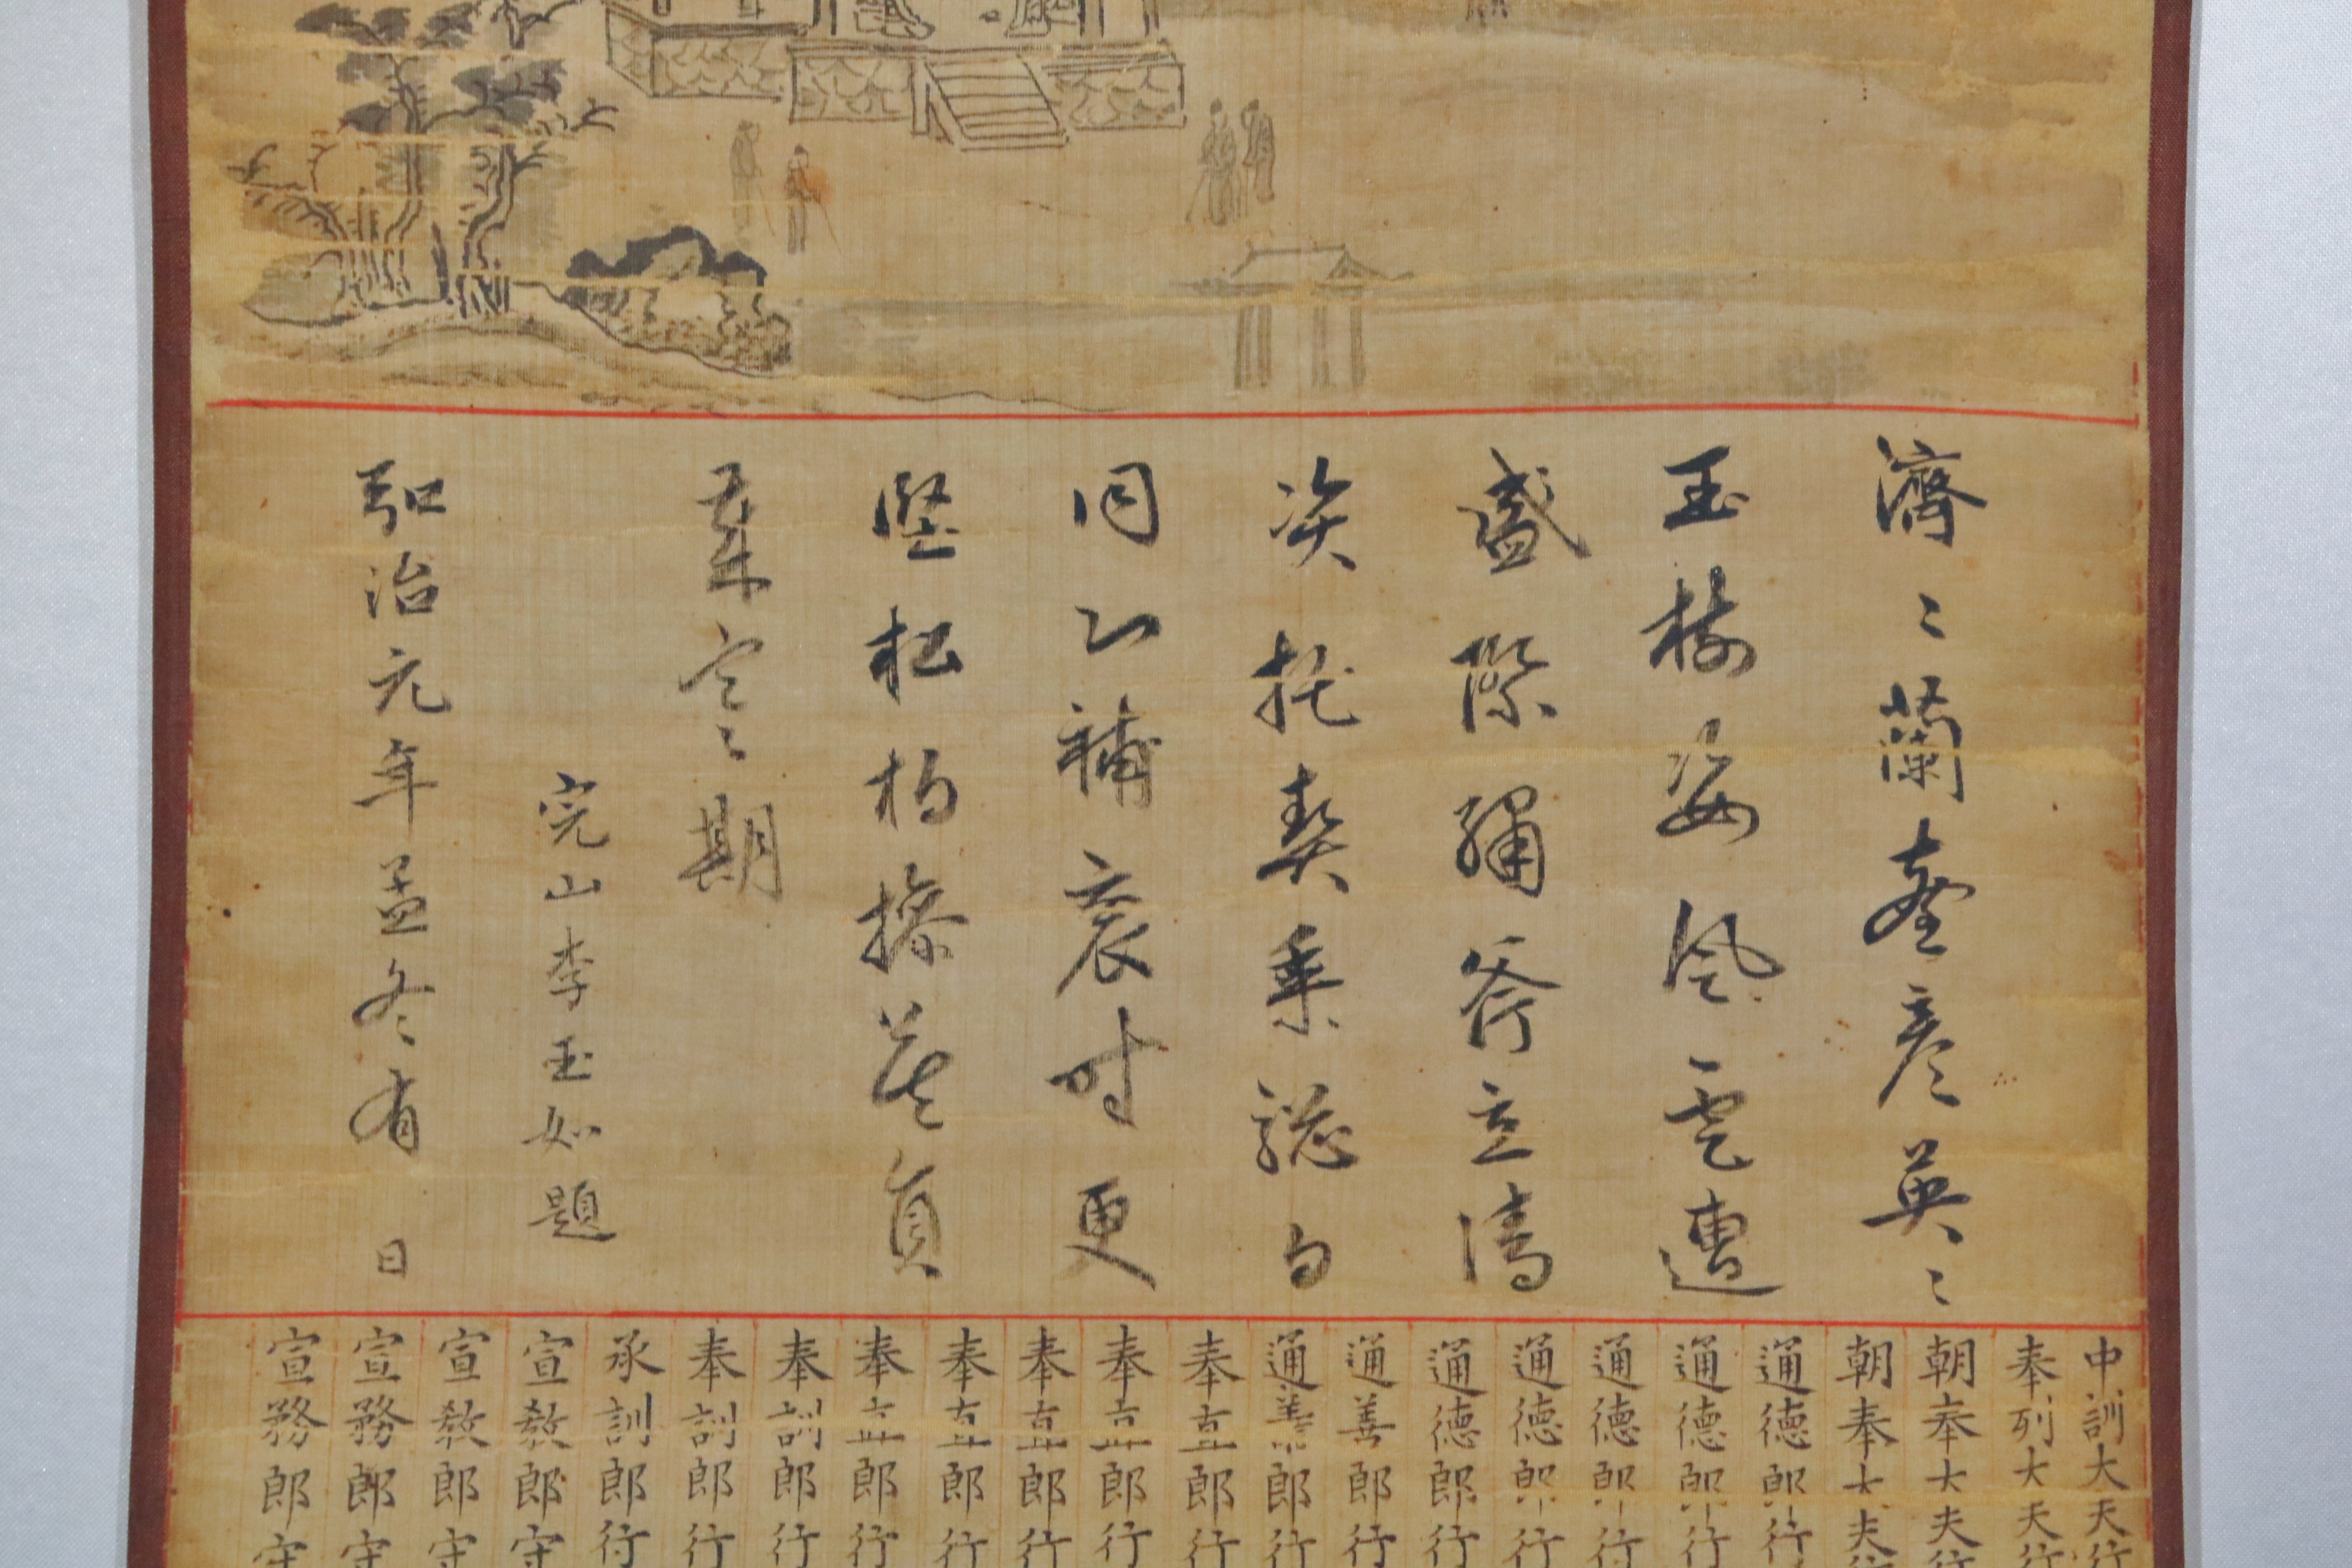 濟〻蘭臺彦英〻
玉樹姿風雲遭
盛際繡斧立清
托契乘驄日
同心補袞時更
堅松栢操莫負
歲寒期
完山李玉如題
弘治元年孟冬有日
中訓大夫行
奉列大夫行
朝奉大夫行
朝奉大夫行
通德郎行
通德郎行
通德郎行
通德郎行
通德郎行
通善郎行
通善郎行
奉直郎行
奉直郎行
奉直郎行
奉直郎行
奉直郎行
奉訓郎行
奉訓郎行
承訓郎行
宣敎郎守
宣敎郎守
宣務郎守
宣務郎守